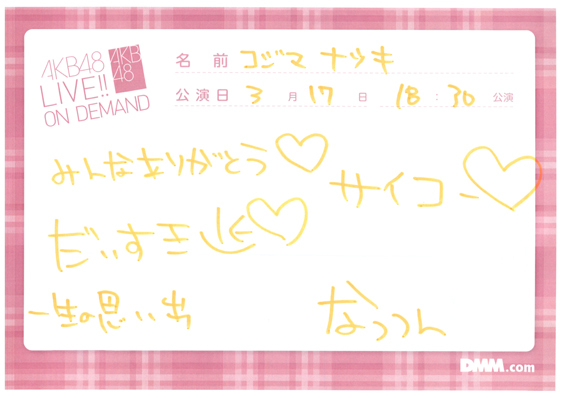 AKB48
LIVE!!
ON DEMAND
AKB
48
名前 コジマ ナツキ
公演日 3月17日 18:30 公演
みんなありがとう♡
サイコー♡
だいすき♡
一生の思い出
なっつん
DMM.com